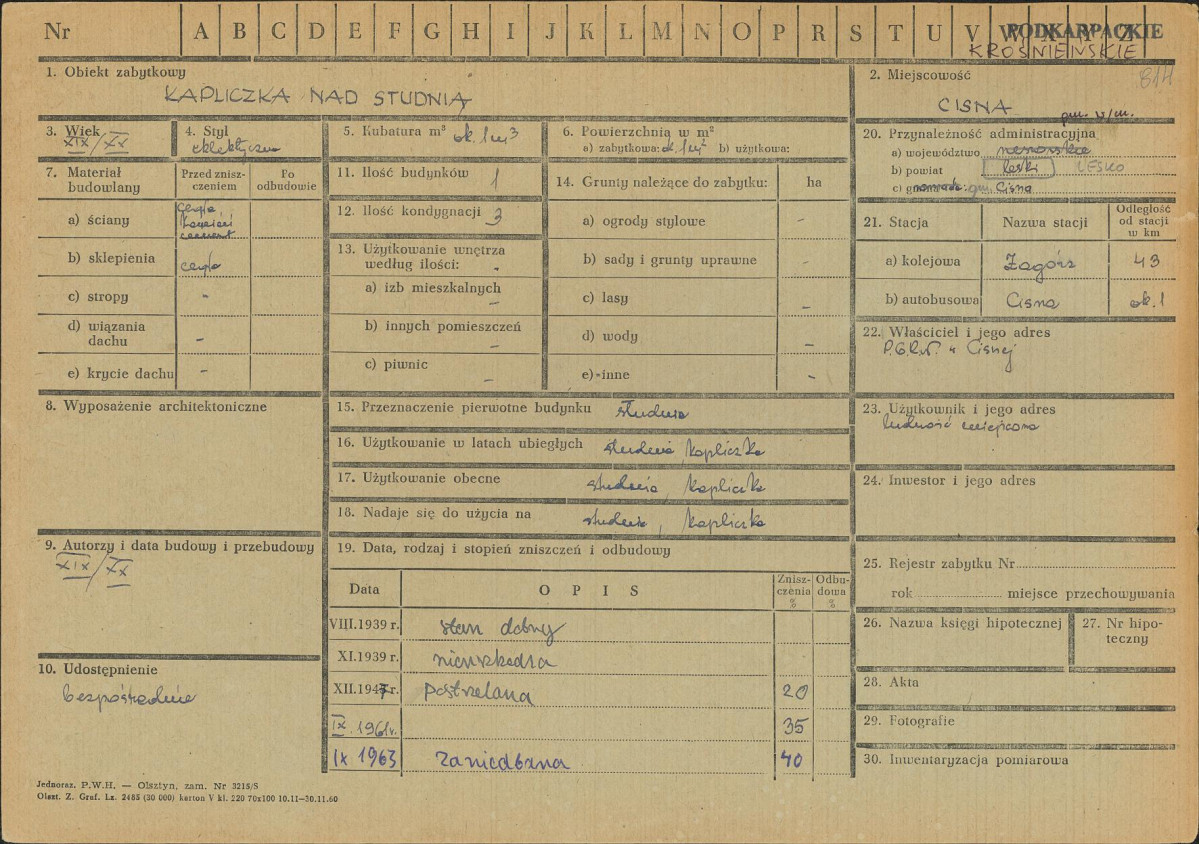 Nr A B C D E F G H I J K L M N O P R S T U V W X Y Z
PODKARPACKIE
KROŚNIEŃSKIE
1. Obiekt zabytkowy
KAPLICZKA NAD STUDNIĄ
2. Miejscowość
814
CISNA
pow. w/m.
3. Wiek
XIX/XX
4. Styl
eklektyczna
5. Kubatura m³ ok. 1 m³
6. Powierzchnią w m²
a) zabytkowa: ok. 1 m² b) użytkowa:
7. Materiał budowlany
Przed znisz-
czeniem
Po
odbudowie
a) ściany
cegła,
kamień
cement
b) sklepienia cegła
c) stropy -
d) wiązania
dachu -
e) krycie dachu -
8. Wyposażenie architektoniczne
9. Autorzy i data budowy i przebudowy
XIX/XX
10. Udostępnienie
bezpośrednie
11. Ilość budynków 1
12. Ilość kondygnacji 3
13. Użytkowanie wnętrza
według ilości: -
a) izb mieszkalnych -
b) innych pomieszczeń -
c) piwnic -
14. Grunty należące do zabytku: ha
a) ogrody stylowe -
b) sady i grunty uprawne -
c) lasy -
d) wody -
e) inne -
15. Przeznaczenie pierwotne budynku studnia
16. Użytkowanie w latach ubiegłych studnia, kapliczka
17. Użytkowanie obecne studnia, kapliczka
18. Nadaje się do użycia na studnia, kapliczka
19. Data, rodzaj i stopień zniszczeń i odbudowy
Data OPIS Znisz-
czenia
% Odbu-
dowa
%
VIII.1939 r. stan dobry
XI.1939 r. nieuszkodza
XII.1947 r. postrzelana 20
IX.1961r. 35
IX 1963 zaniedbana 40
20. Przynależność administracyjna
a) województwo rzeszowskie
b) powiat leski LESKO
c) gromada: gm. Cisna
21. Stacja Nazwa stacji Odległość
od stacji
w km
a) kolejowa Zagórz 43
b) autobusowa Cisna ok. 1
22. Właściciel i jego adres
P.G.R.N. w Cisnej
23. Użytkownik i jego adres
ludność miejscowa
24. Inwestor i jego adres
25. Rejestr zabytku Nr
rok miejsce przechowywania
26. Nazwa księgi hipotecznej
27. Nr hipo-
teczny
28. Akta
29. Fotografie
30. Inwentaryzacja pomiarowa
Jednoraz. P.W.H. — Olsztyn, zam. Nr 3215/S
Olszt. Z. Graf. Lz. 2485 (30 000) karton V kl. 220 70x100 10.11—30.11.60